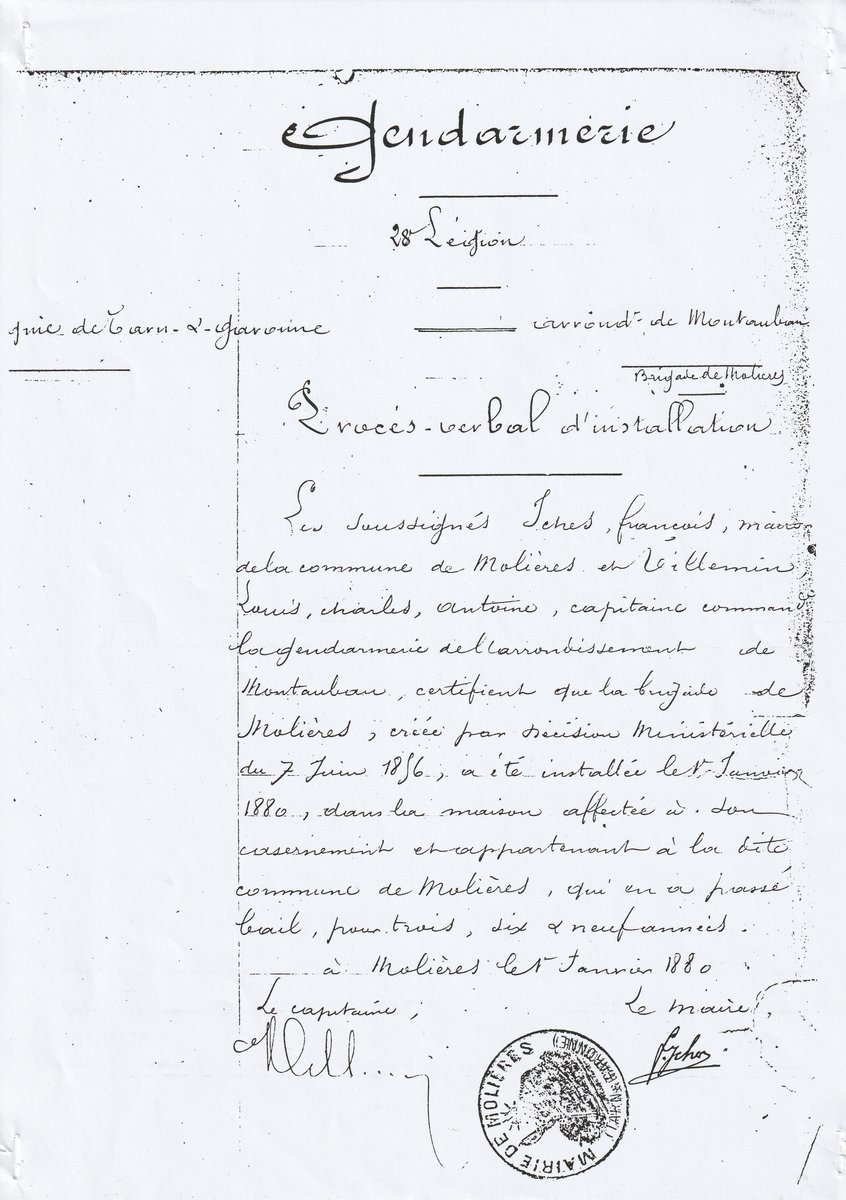 Gendarmerie
28e Légion
gnie de Tarn-&-Garonne
arrondt de Montauban
Brigade de Molières
Procés-verbal d'installation
Les soussignés Iches, françois, maire
de la commune de Molières et Villemin,
Louis, charles, antoine, capitaine commandt
la gendarmerie de l'arrondissement de
Montauban, certifient que la brigade de
Molières, créée par décision Ministérielle
du 7 Juin 1856, a été installée le 1r Janvier
1880, dans la maison affectée à son
casernement et appartenant à la dite
commune de Molières, qui en a passé
bail, pour trois, six & neuf années.
à Molières le 1r Janvier 1880
Le capitaine,
Le Maire,
f. Iches
MAIRIE DE MOLIÈRES